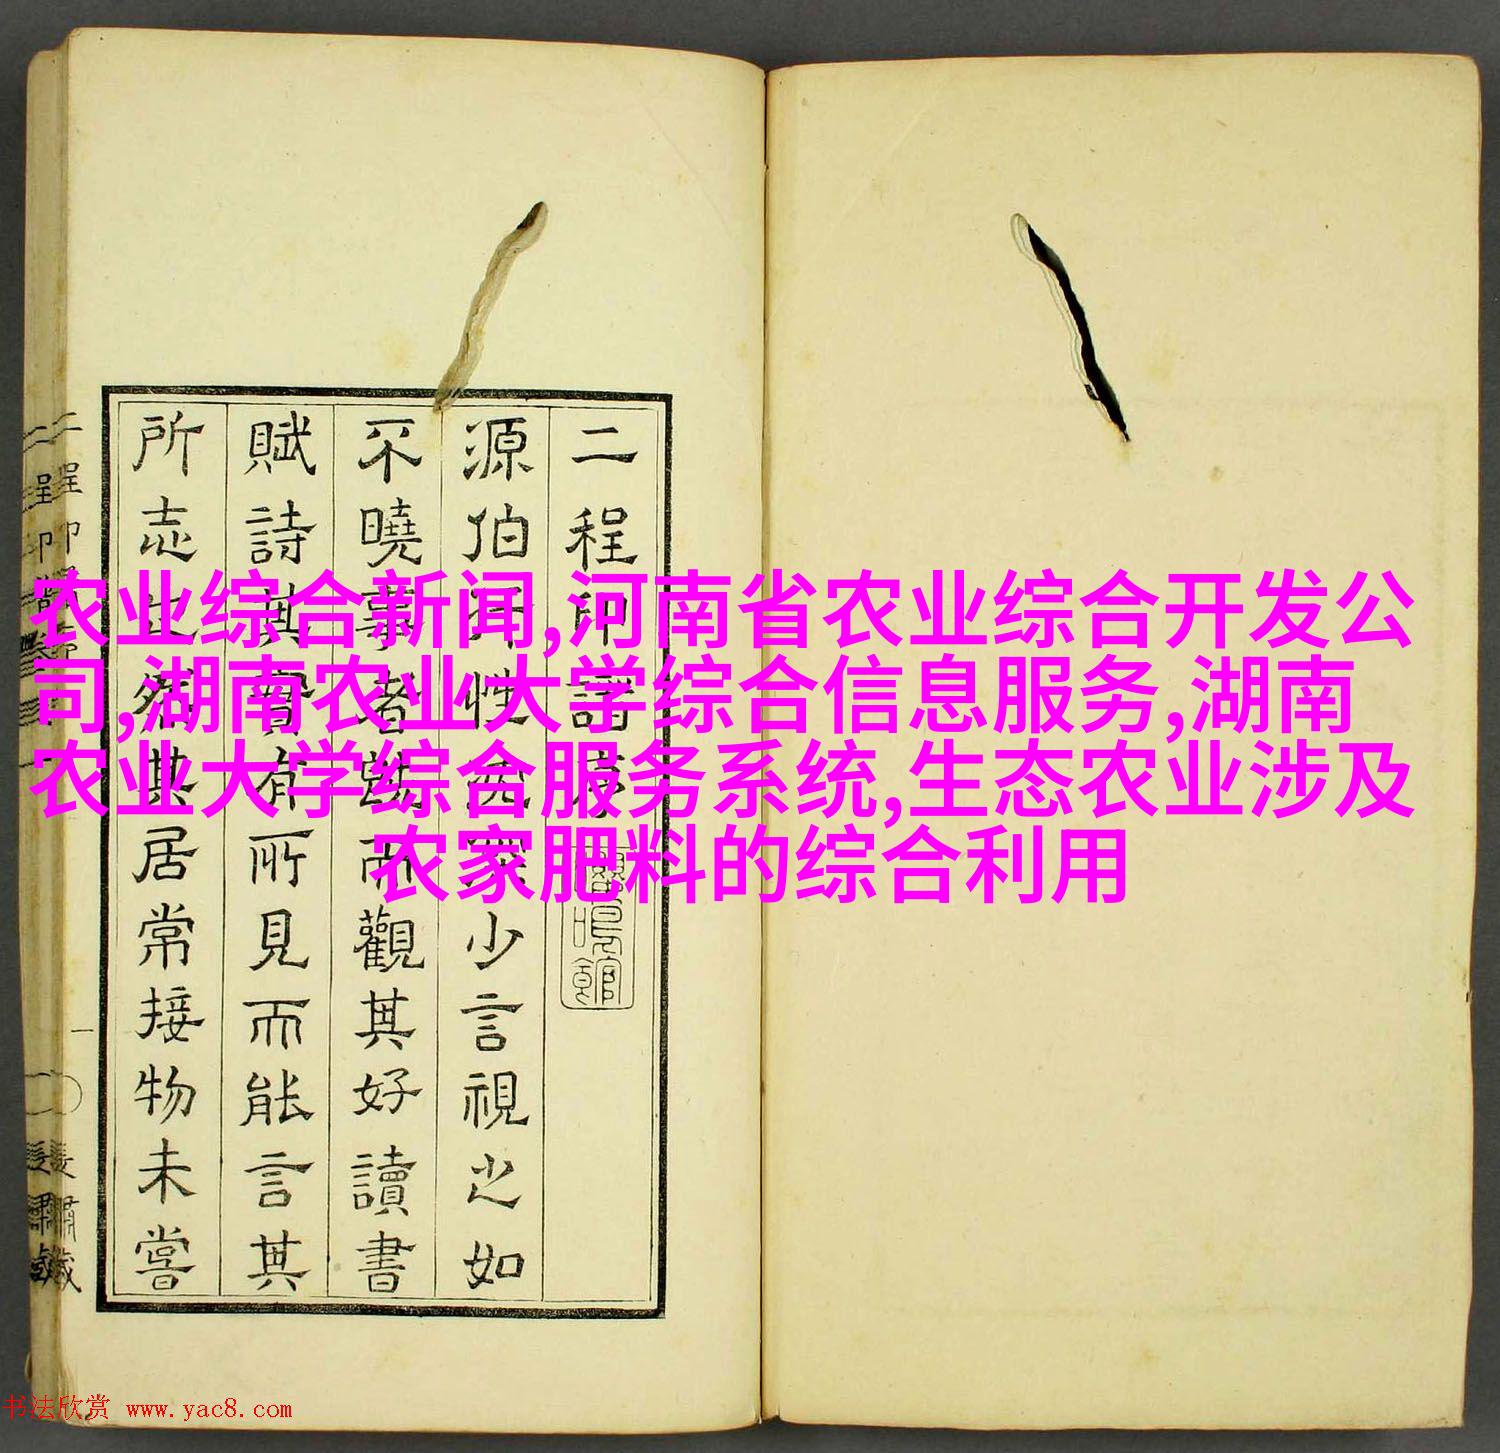 农业综合新闻,河南省农业综合开发公
司,湖南农业大学综合信息服务,湖南
农业大学综合服务系统,生态农业涉及
农家肥料的综合利用
二程印譜序
源伯 性 少言視之如
不曉事者 而觀其好讀書
賦詩其實有所見而能言其
所志也 其居常接物未嘗
二程印譜
一
书法欣赏 www.yac8.com